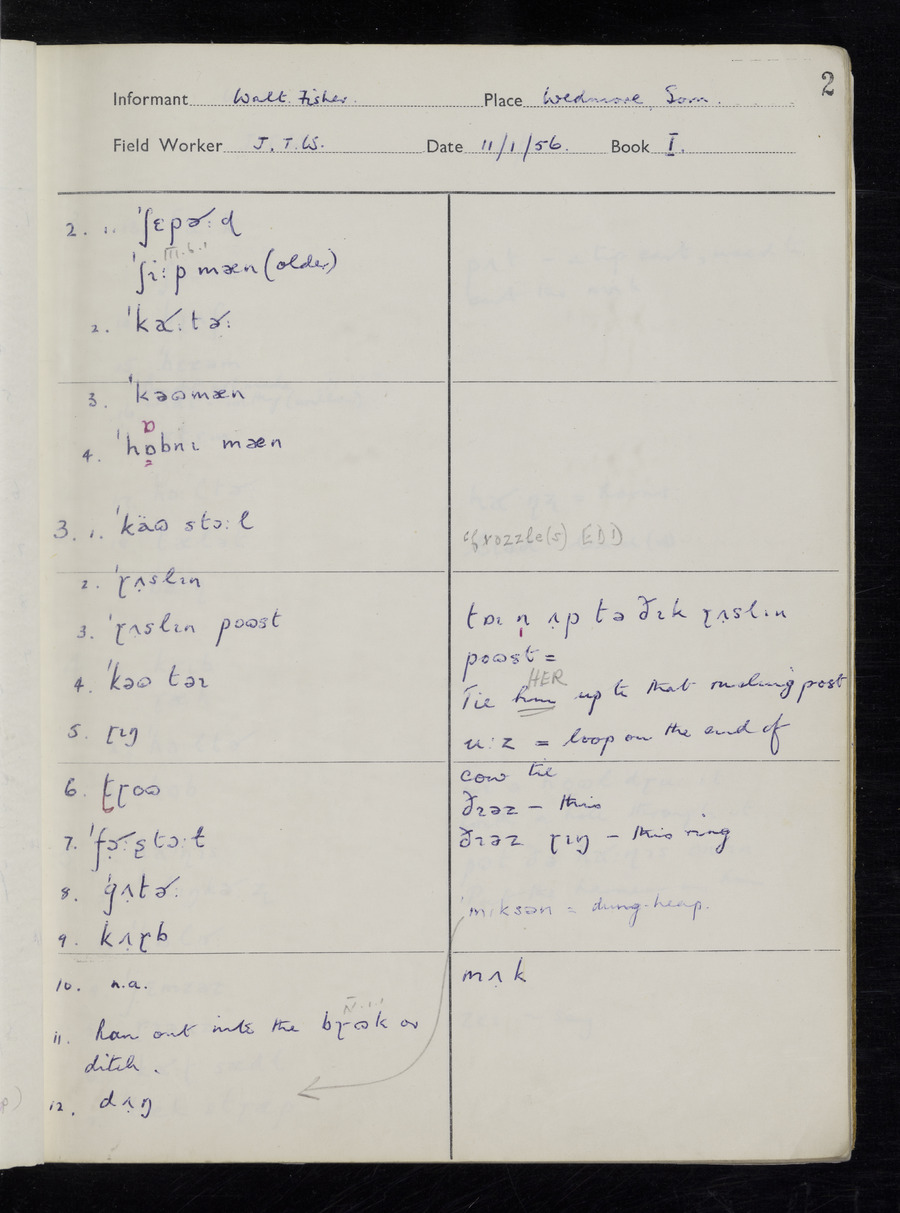 2
Informant Walt. Fisher. Place Wedmore, Som.
Field Worker J.T.W. Date 11/1/56. Book I.
2. 1. ˈʃɛpə˞ːɖ
III.6.1
ˈʃiːp mæn (older)
2. ˈkɑ˞ːtə˞ː
3. ˈkəʊmæn
ɒ
4. ˈhɒbnɪ mæn
3. 1. ˈkäʊ stɔːl
2. ˈɽʌ̣slɪn
3. ˈɽʌ̣slɪn poʊst
4. ˈkəʊ təɪ
5. ɽɪŋ
6. ʈɽoʊ
7. ˈfɔ˞ːʂtɔːɫ
8. ˈgʌ̣tə˞ː
9. kʌ̣ɽb
10. n.a.
IV.1.1
11. Ran out into the bɽʊk or
ditch.
12. dʌ̣ŋ
cf rozzle(s) EDD
tɒɪ n̩ ʌ̣p tə ðɪk ɽʌ̣slɪn
poʊst =
HER
Tie him up to that rusling post
u:z = loop on the end of
cow tie
ðɪəz – this
ðɪəz ɽɪŋ – this ring
ˈmɪksən = dung-heap.
mʌ̣k